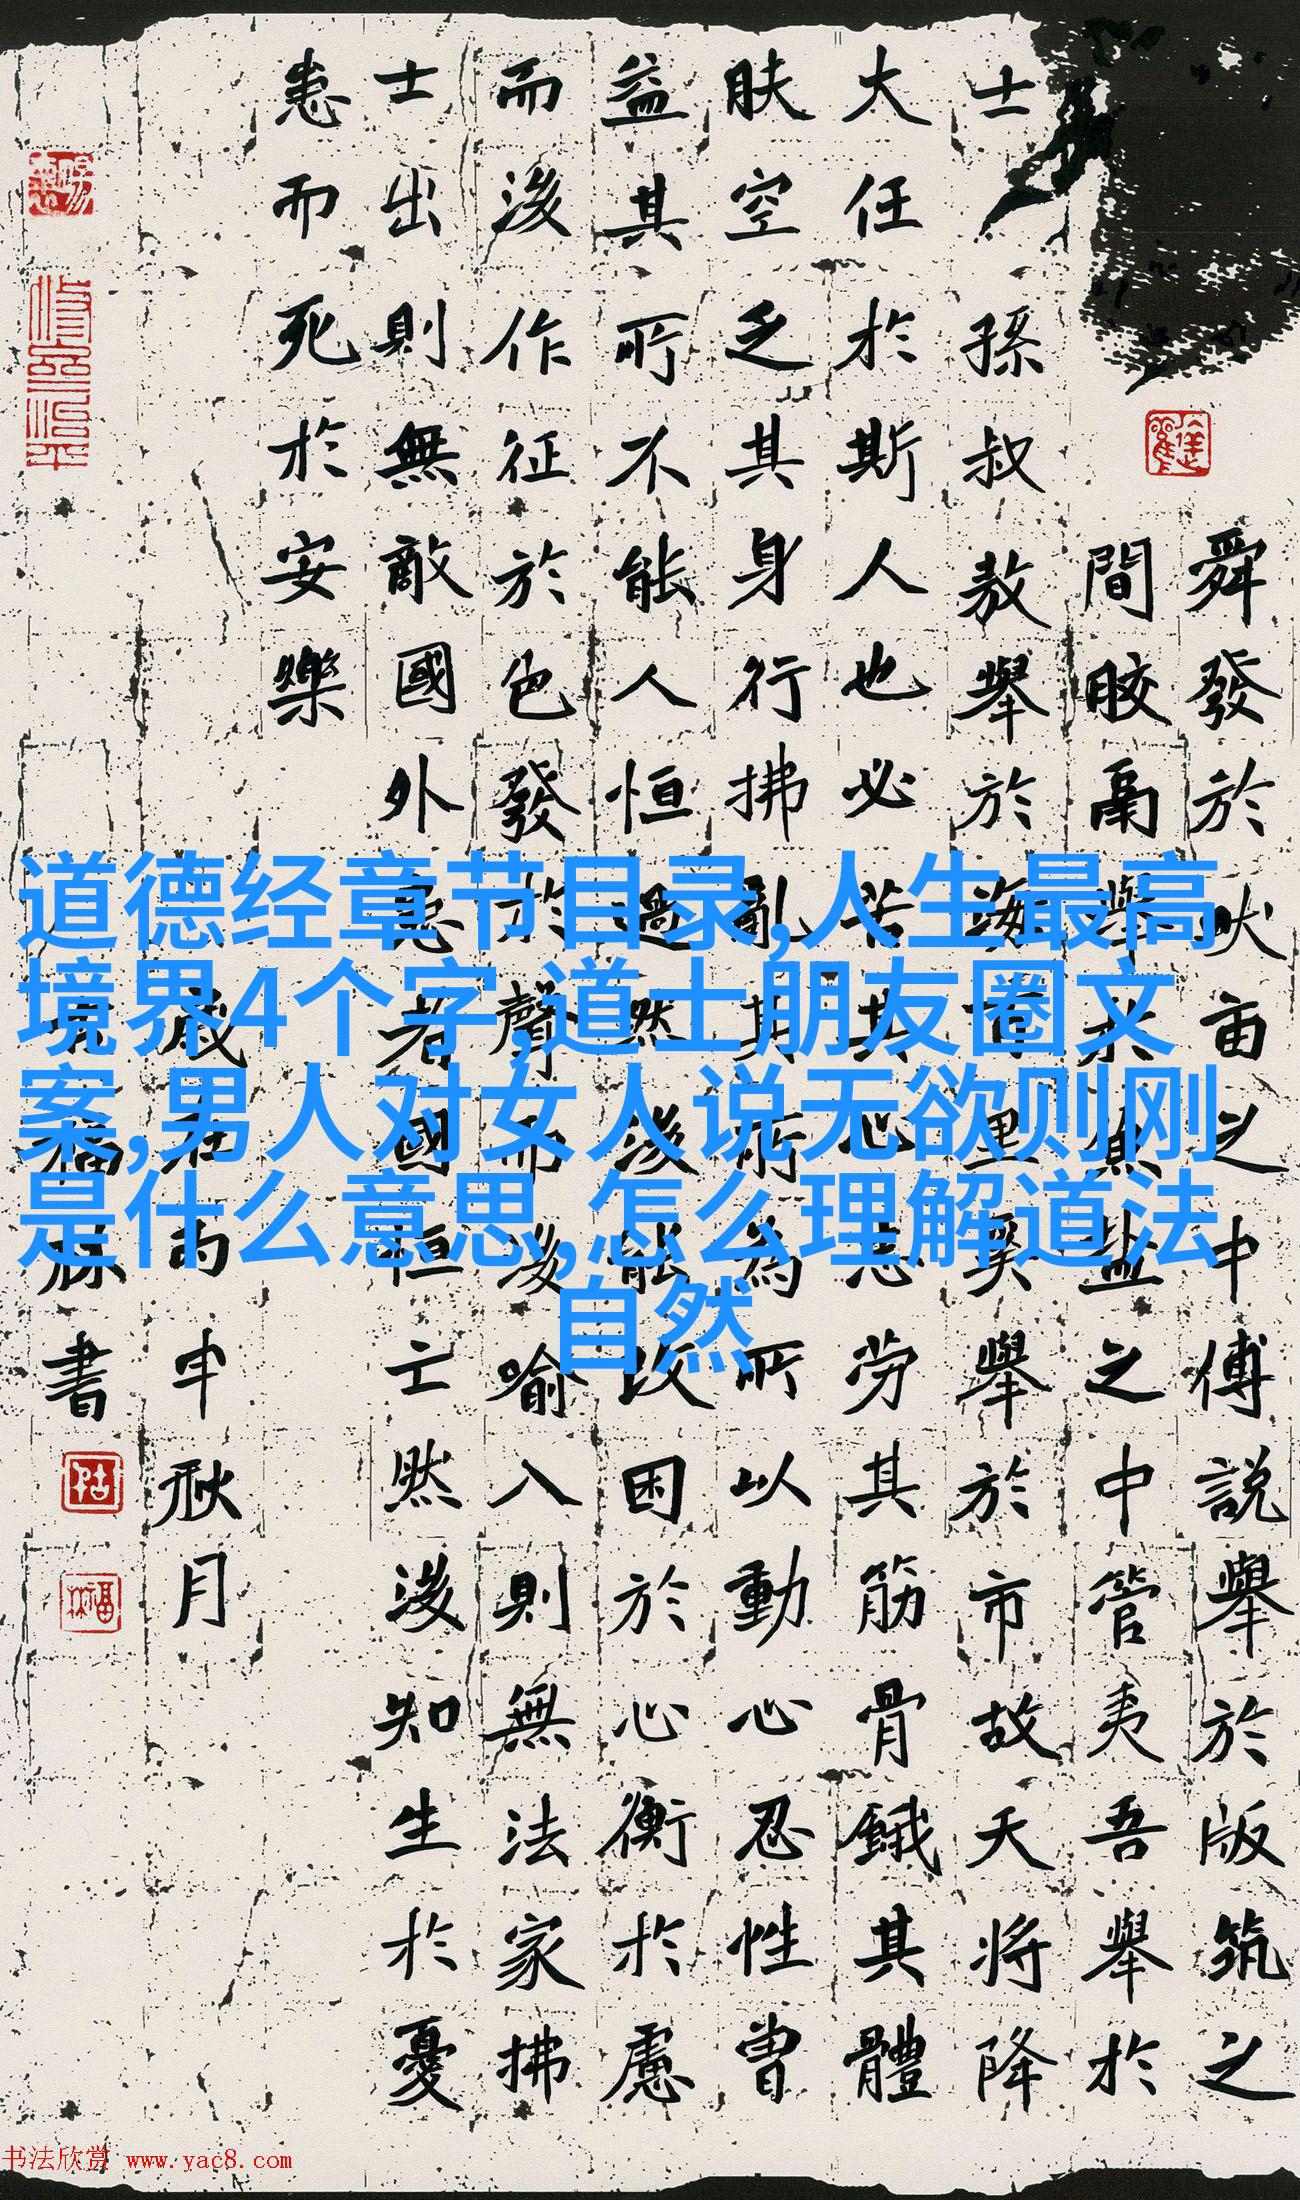 舜發於畎亩之中傅説舉於版筑之
間胶鬲舉於魚盐之中管夷吾舉於
士孫叔敖舉於海百里奚舉於市故天将降
大任於斯人也必苦其心志劳其筋骨餓其體
肤空乏其身行拂亂其所為所以動心忍性曾
益其所不能人恒過然後能改困於心衡於慮
而後作征於色發於聲而後喻入則無法家拂
士出則無敵國外患者國恒亡然後知生於憂
患而死於安樂
歲在丙申秋月
福林書
道德经章节目录,人生最高
境界4个字,道士朋友圈文
案,男人对女人说无欲则刚
是什么意思,怎么理解道法
自然
书法欣赏 www.yac8.com